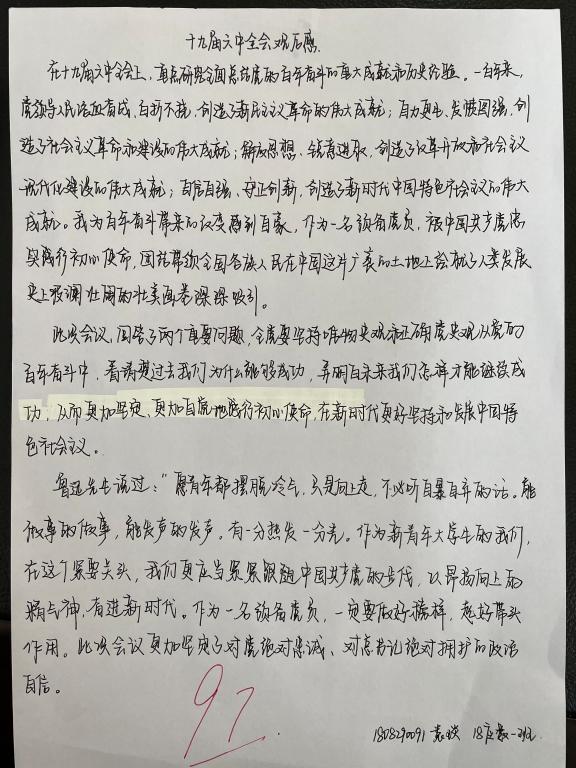 十九届六中全会观后感
在十九届六中全会上，重点研究全面总结党的百年奋斗的重大成就和历史经验。一百年来，
党领导人民浴血奋战、百折不挠，创造了新民主主义革命的伟大成就；自力更生、发愤图强，创
造了社会主义革命和建设的伟大成就；解放思想、锐意进取，创造了改革开放和社会主义
现代化建设的伟大成就；自信自强、守正创新，创造了新时代中国特色社会主义的伟大
成就。我为百年奋斗带来的改变感到自豪，作为一名预备党员，被中国共产党忠
实践行初心使命，团结带领全国各族人民在中国这片广袤的土地上绘就了人类发展
史上波澜壮阔的壮美画卷深深吸引。
此次会议，回答了两个重要问题，全党要坚持唯物史观和正确党史观从党的
百年奋斗中，看清楚过去我们为什么能够成功，弄明白未来我们怎样才能继续成
功，从而更加坚定、更加自觉地践行初心使命，在新时代更好坚持和发展中国特
色社会主义。
鲁迅先生说过："愿青年都摆脱冷气，只是向上走，不必听自暴自弃的话。能
做事的做事，能发声的发声。有一分热发一分光。作为新青年大学生的我们，
在这个紧要关头，我们更应当紧紧跟随中国共产党的步伐，以昂扬向上的
精气神，奋进新时代。作为一名预备党员，一定要做好榜样，起好带头
作用。此次会议更加坚定了对党绝对忠诚、对总书记绝对拥护的政治
自信。
97
1808290091 袁 18应数一班